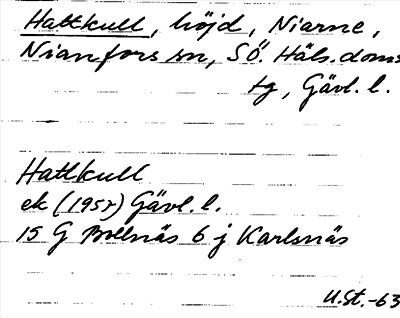 Hattkull, höjd, Niarne,
Nianfors sn, SÖ. Häls. doms
tg, Gävl. l.
Hattkull
ek (1957) Gävl. l.
15 G Bollnäs 6 j Karlsnäs
U.St. -63